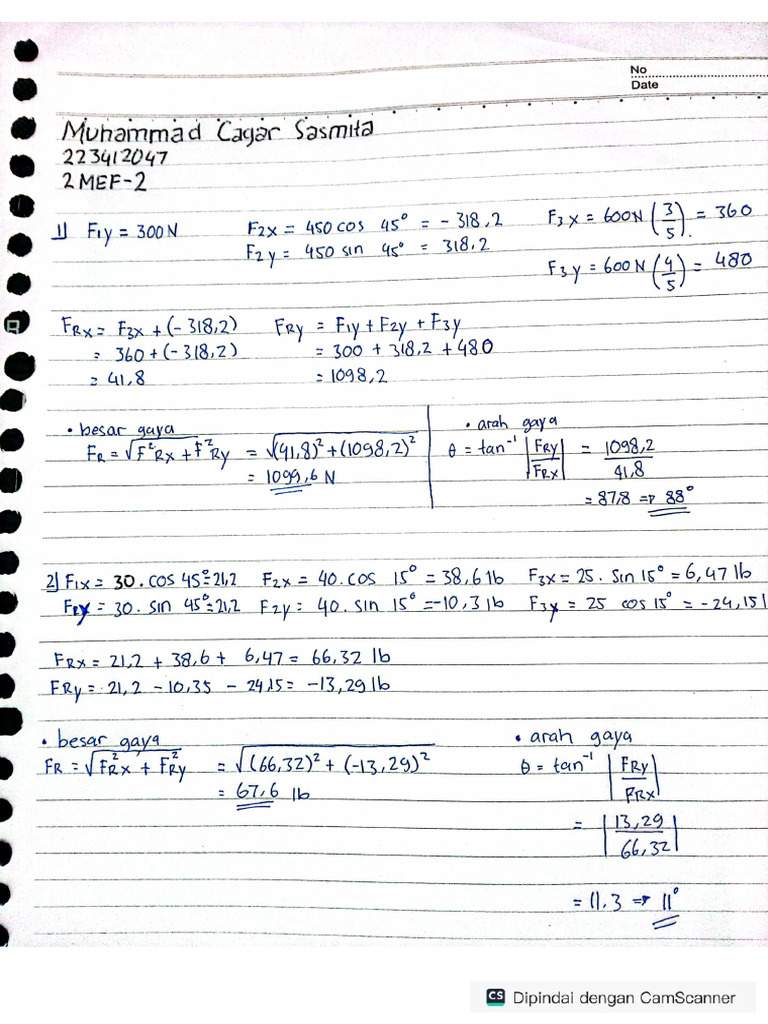 No
Date
Muhammad Cagar Sasmita
223412047
2 MEF-2
1) F1y = 300 N
F2x = 450 cos 45° = - 318,2
F2y = 450 sin 45° = 318,2
F3x = 600N (3/5) = 360
F3y = 600N (4/5) = 480
FRx = F3x + (- 318,2)
= 360 + (- 318,2)
= 41,8
FRy = F1y + F2y + F3y
= 300 + 318,2 + 480
= 1098,2
• besar gaya
FR = √F²Rx + F²Ry = √(41,8)² + (1098,2)²
= 1099,6 N
• arah gaya
θ = tan⁻¹ |FRy/FRx| = 1098,2/41,8
= 87,8 => 88°
2) F1x = 30 . cos 45° = 21,2 F2x = 40 . cos 15° = 38,6 lb F3x = 25 . sin 15° = 6,47 lb
F1y = 30 . sin 45° = 21,2 F2y = 40 . sin 15° = -10,3 lb F3y = 25 cos 15° = - 24,15 l
FRx = 21,2 + 38,6 + 6,47 = 66,32 lb
FRy = 21,2 - 10,35 - 24,15 = -13,29 lb
• besar gaya
FR = √FR²x + FR²y = √(66,32)² + (-13,29)²
= 67,6 lb
• arah gaya
θ = tan⁻¹ |FRy/FRx|
= |13,29/66,32|
= 11,3 => 11°
CS Dipindai dengan CamScanner